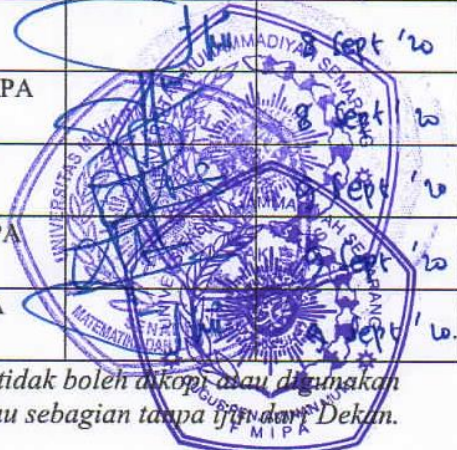 8 Sept '20
PA
8 Sept '20
9 Sept '20
PA
9 Sept '20
A
9 Sept '20.
UNIVERSITAS MUHAMMADIYAH SEMARANG
MATEMATIKA DAN
GUGUS PENJAMINAN MUTU
F M I P A
tidak boleh dikopi atau digunakan
au sebagian tanpa ijin dari Dekan.